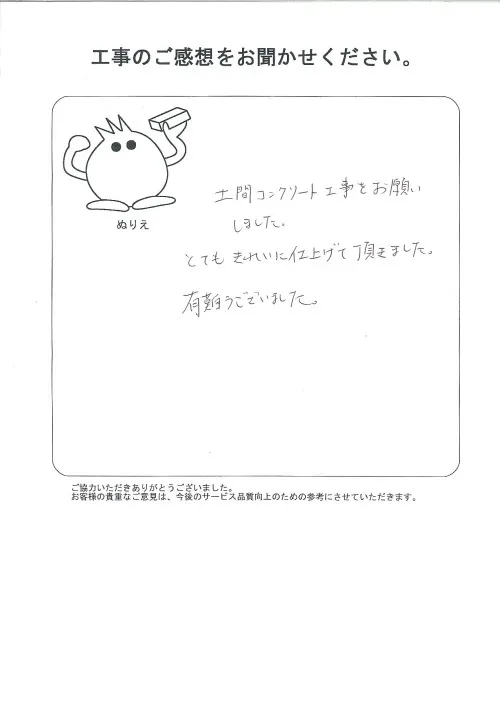 工事のご感想をお聞かせください。
ぬりえ
土間コンクリート工事をお願い
しました。
とても きれいに仕上げて頂きました。
有難うございました。
ご協力いただきありがとうございました。
お客様の貴重なご意見は、今後のサービス品質向上のための参考にさせていただきます。